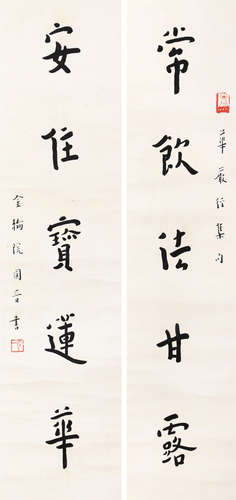 華嚴經集句
常飲法甘露
安住寶蓮華
金輪院圓晉書